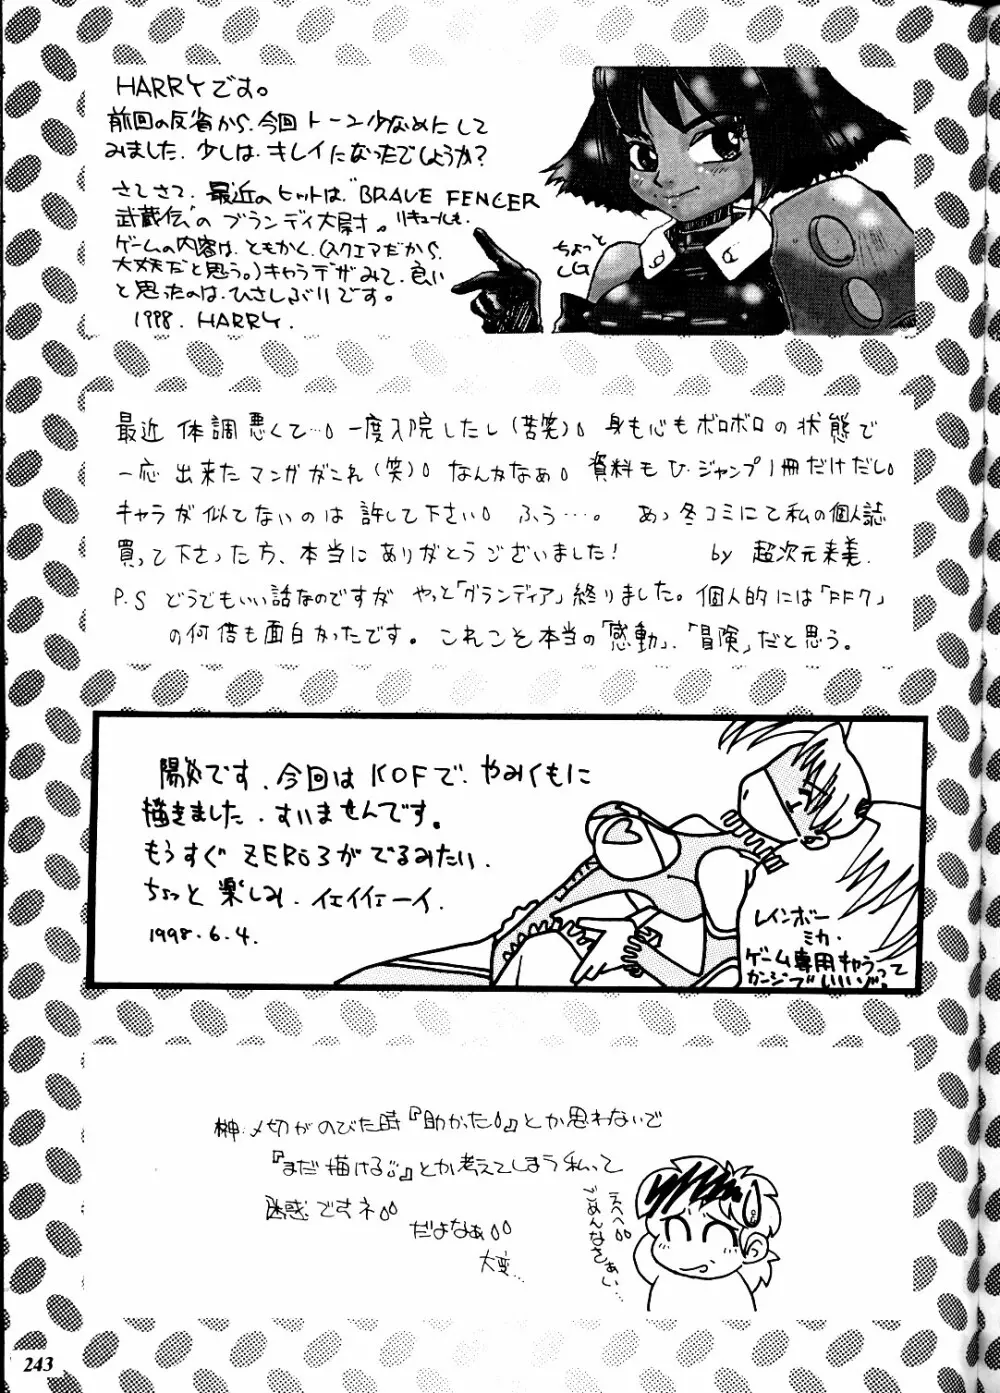 HARRYです。
前回の反省から、今回トーン少なめにして
みました。少しは、キレイになったでしょうか?
さてさて、最近のヒットは、"BRAVE FENCER
武蔵伝"のブランディ大尉。リキュールも。
ゲームの内容は、ともかく、(スクエアだから、
大丈夫だと思う。)キャラデザみて、良い
と思ったのは、ひさしぶりです。
1998. HARRY.
ちょっと
CG
最近 体調悪くて…。一度入院したし(苦笑)。身も心もボロボロの状態で
一応 出来たマンガがこれ(笑)。なんかなぁ。資料もVジャンプ1冊だけだし。
キャラが似てないのは 許して下さい。 ふう…。 あっ冬コミにて私の個人誌
買って下さった方、本当にありがとうございました! by 超次元来美.
P.S どうでもいい話なのですが やっと「グランディア」終りました。個人的には「FF7」
の何倍も面白かったです。これこそ本当の「感動」、「冒険」だと思う。
陽炎です、今回はKOFで、やみくもに
描きました。すいませんです。
もうすぐ ZERO3がでるみたい、
ちょっと楽しみ、イェイイェーイ、
1998.6.4.
レインボー
ミカ・
ゲーム専用キャラって
カンジでいいゾ?
榊:〆切がのびた時『助かった。』とか思わないで
『まだ描ける』とか考えてしまう私って
迷惑ですネ。
だよなぁ。
大変…
えへへ
ごめんなさぁい…
243